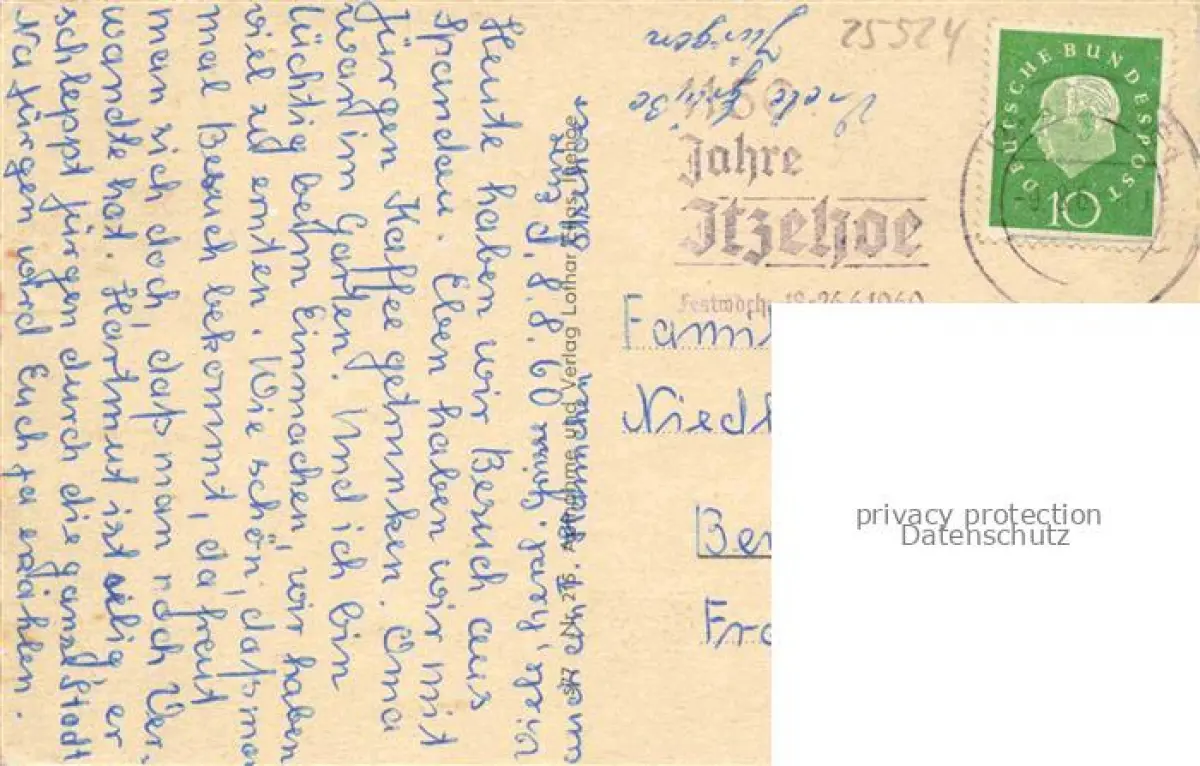 25524
Viele Grüße
Jürgen
1150
Jahre
Itzehoe
Festwoche 18-26.6.1960
DEUTSCHE BUNDESPOST
10
Famil
Niedl
Ber
Fra
privacy protection
Datenschutz
Nr. 276. Aufnahme und Verlag Lothar
d. 8.8.60
Heute haben wir Besuch aus
Spandau. Eben haben wir mit
Jürgen Kaffee getrunken. Oma
war im Garten. Und ich bin
tüchtig beim Einmachen, wir haben
viel zu ernten. Wie schön, daß man
mal Besuch bekommt, da freut
man sich doch, daß man noch Ver-
wandte hat. Hartmut ist selig, er
schleppt Jürgen durch die ganze Stadt
Na Jürgen wird Euch ja erzählen.